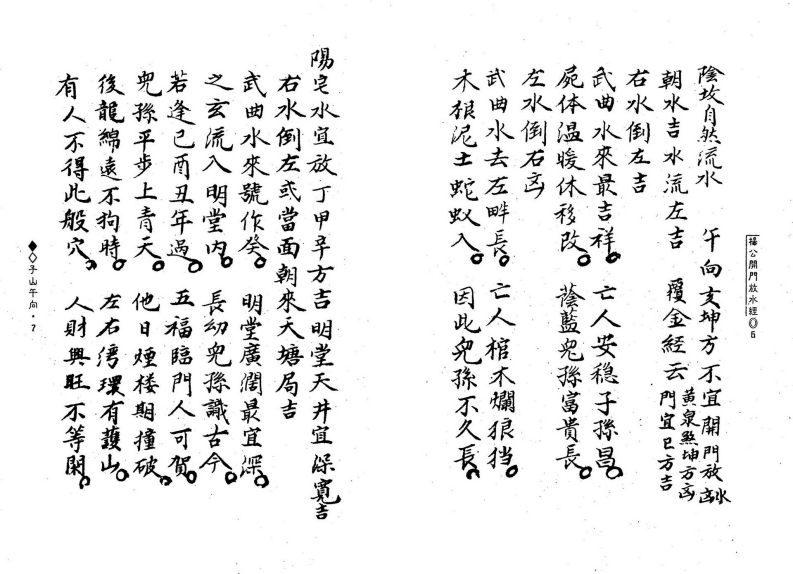 楊公開門放水經◎6
陰坟自然流水　午向亥坤方不宜開門放水凶
黃泉煞坤方凶
門宜巳方吉
朝水吉水流左吉　覆金經云
右水倒左吉
武曲水來最吉祥。亡人安穩子孫昌。
屍体温暖休移改。蔭藍兒孫富貴長。
左水倒右凶
武曲水去左畔長。亡人棺木爛狼挡。
木根泥土蛇蚁入。因此兒孫不久長。
陽宅水宜放丁甲辛方吉明堂天井宜深寬吉
右水倒左或當面朝來天塘局吉
武曲水來號作癸。明堂廣濶最宜深。
之玄流入明堂內。長幼兒孫識古今。
若逢己酉丑年過。五福臨門人可賀。
兒孫平步上青天。他日烟楼期撞破。
後龍綿遠不狗時。左右灣環有護山。
有人不得此般穴。人財興旺不等閑。
◆◇子山午向·7